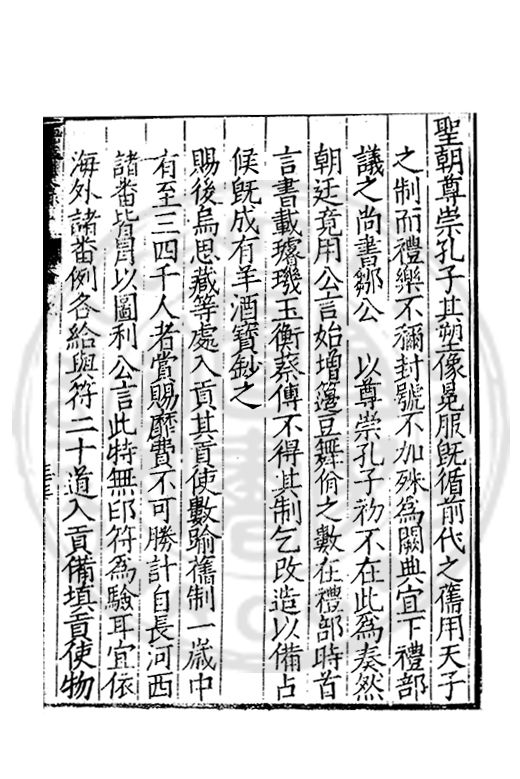 聖朝尊崇孔子其塑像冕服既循前代之舊用天子
之制而禮樂不稱封號不加殊為闕典宜下禮部
議之尚書鄒公 以尊崇孔子初不在此為奏然
朝廷竟用公言始增籩豆舞佾之數在禮部時首
言書載璿璣玉衡蔡傳不得其制乞改造以備占
候既成有羊酒寶鈔之
賜後烏思藏等處入貢其貢使數踰舊制一歲中
有至三四千人者賞賜靡費不可勝計自長河西
諸番皆冐以圖利公言此特無印符為驗耳宜依
海外諸番例各給與符二十道入貢備填貢使物